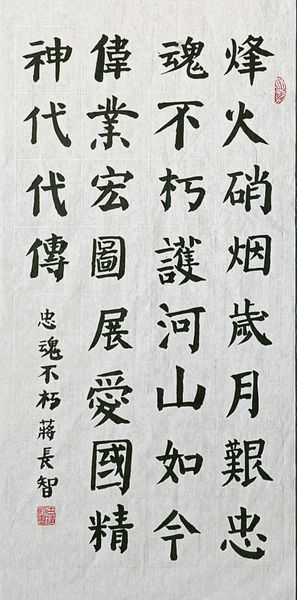 烽火硝烟歲月艱忠
魂不朽護河山如今
偉業宏圖展愛國精
神代代傳
忠魂不朽蔣長智